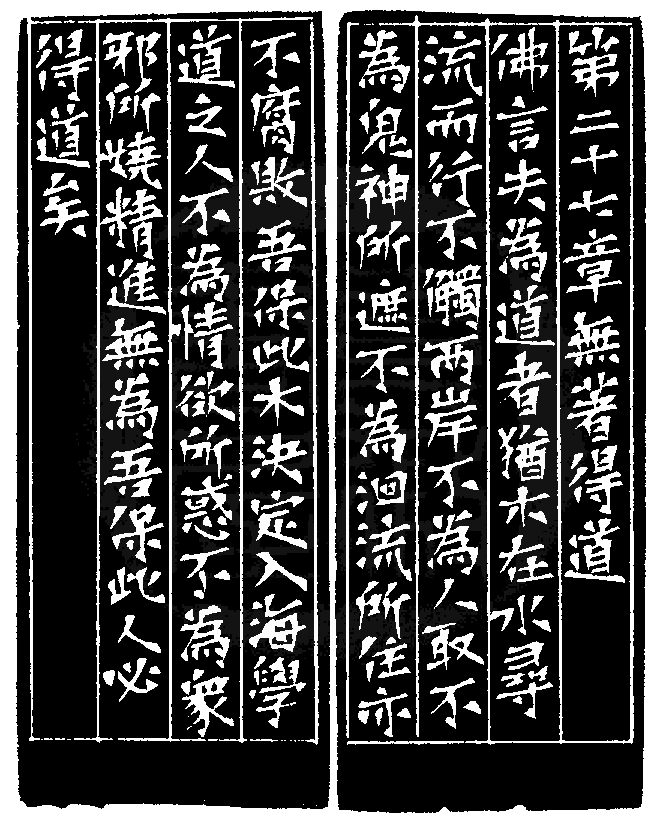 第二十七章無著得道
佛言夫為道者猶木在水尋
流而行不觸兩岸不為人取不
為鬼神所遮不為洄流所住亦
不腐敗吾保此木決定入海學
道之人不為情欲所惑不為衆
邪所嬈精進無為吾保此人必
得道矣